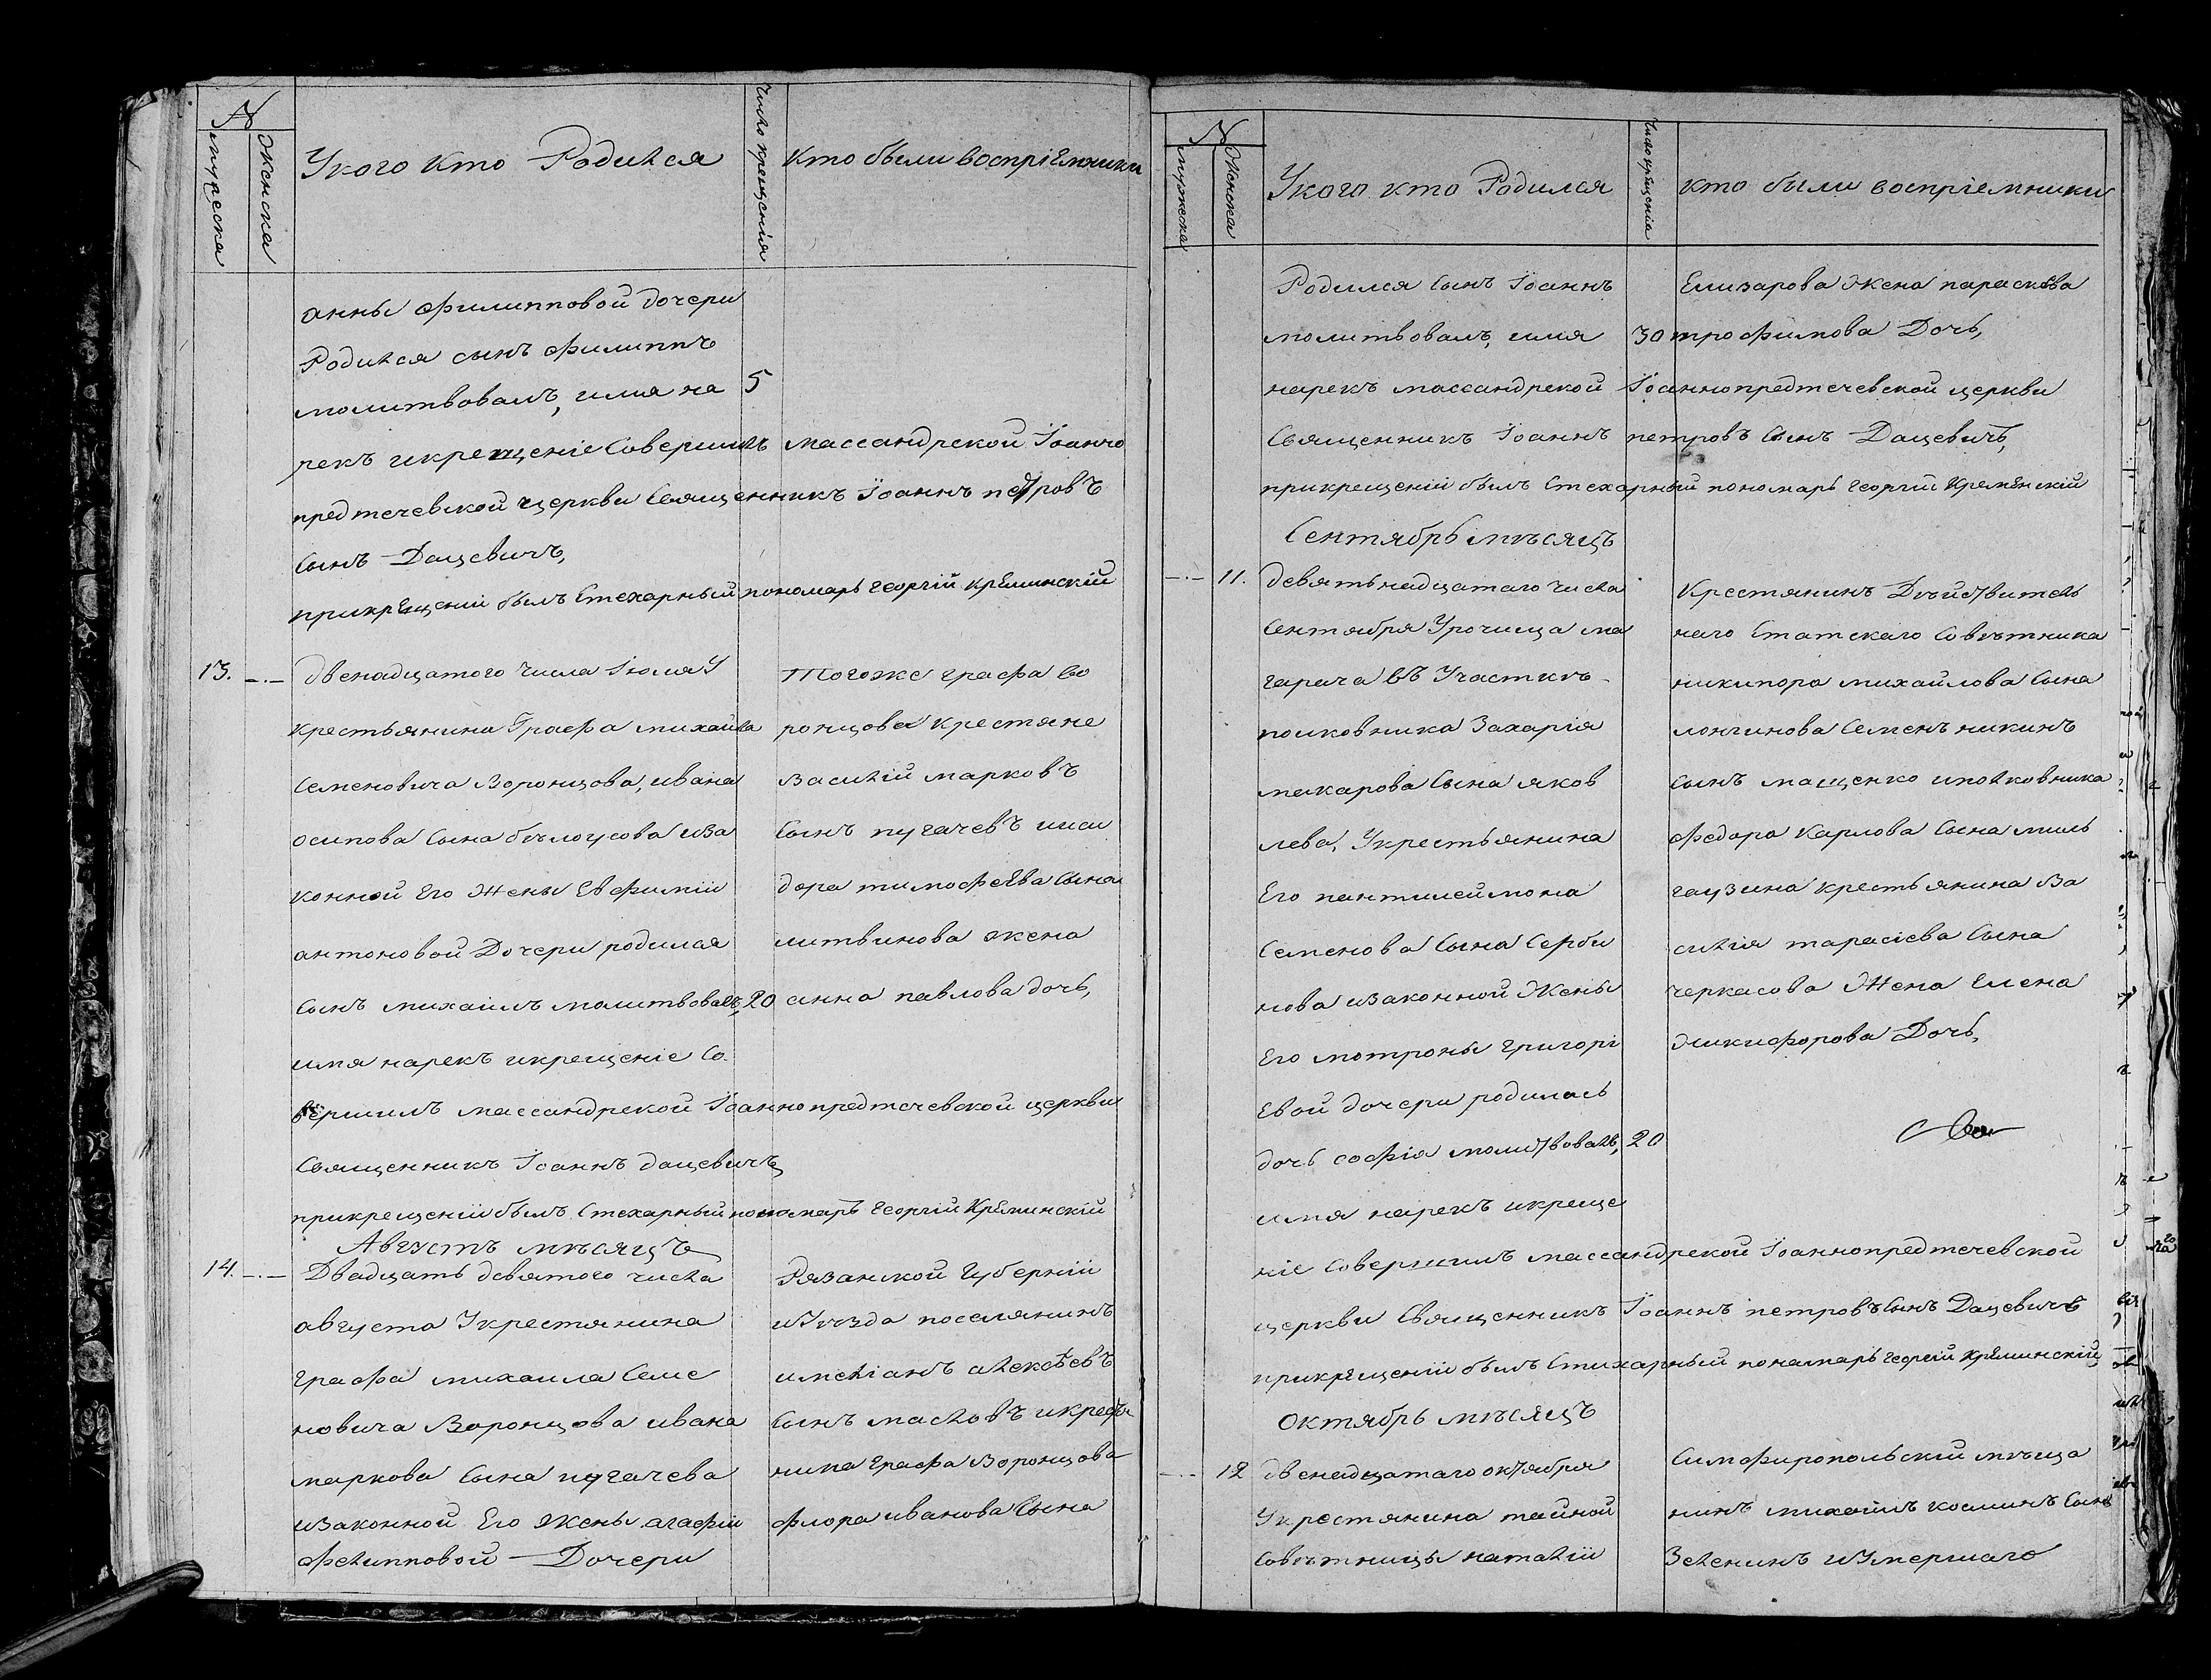 №
мужеска
женска
Укого кто Родился
число крещенія
кто были воспріемники
анны филипповой дочери
Родился сынъ филиппъ
молитвовалъ, имя на 5
рекъ икрещеніе Совершилъ массандрской Іоанно
предтечевской церкви Священникъ Іоаннъ петровъ
сынъ Дацевичъ,
прикрещеніи былъ Стехарный пономарь георгій креминскій
13. -.-
двенадцатого числа Іюля У
крестьянина Графа михаила
Семеновича Воронцова, ивана
осипова сына бѣлоусова иза
конной Его Жены Евфиміи
антоновой Дочери родился
сынъ михаилъ молитвовалъ, 20
имя нарекъ икрещеніе Со
вершилъ массандрской Іоаннопредтечевской церкви
Священникъ Іоаннъ дацевичъ,
прикрещеніи былъ Стехарный пономарь георгій Креминскій
Тогоже графа Во
ронцова крестяне
василій марковъ
сынъ пугачевъ иси
дора тимофеева сына
литвинова жена
анна павлова дочь,
Августъ мѣсяцъ
14. -.-
Двадцать девятого числа
августа Укрестянина
графа михаила Семе
новича Воронцова ивана
маркова сына пугачева
изаконной Его жены агафіи
фелипповой Дочери
Рязанской губерніи
иуѣзда поселянинъ
имеліанъ алексѣевъ
сынъ масловъ икрестья
нина графа Воронцова
флора иванова сына
№
мужеска
женска
Укого кто Родился
число крещенія
кто были воспріемники
Родился сынъ Іоаннъ
молитвовалъ, имя 30
нарекъ массандрской Іоаннопредтечевской церкви
Священникъ Іоаннъ петровъ сынъ Дацевичъ,
прикрещеніи былъ Стехарный пономарь георгій Кременскій
Елизарова жена параскева
трофимова Дочь,
Сентябрь мѣсяцъ
-.- 11.
девятьнадцатаго числа
Сентября Урочища ма
гарача въ Участкѣ
полковника Захарія
макарова сына яков
лева, Укрестьянина
Его пантилеймона
Семенова сына Серби
нова изаконной Жены
Его мотроны григорі
евой дочери родилась
дочь софія молитвовалъ, 20
имя нарекъ икреще
ніе Совершилъ массандрской Іоаннопредтечевской
церкви Священникъ Іоаннъ петровъ сынъ Дацевичъ
прикрещеніи былъ Стихарный пономарь георгій креминскій
Крестянинъ Дѣйствитель
наго Статскаго Совѣтника
никипора михайлова сына
лонгинова Семенъ никинъ
сынъ мащенко иполковника
федора карлова сына миль
гаузина крестьянина ва
силія тарасіева сына
черкасова Жена Елена
никифорова Дочь,
Октябрь мѣсяцъ
-.- 12
двенадцатаго октября
Укрестянина тайной
совѣтницы наталіи
Симфиропольскій мѣща
нинъ михаилъ косминъ сынъ
Зеленинъ иУмершаго